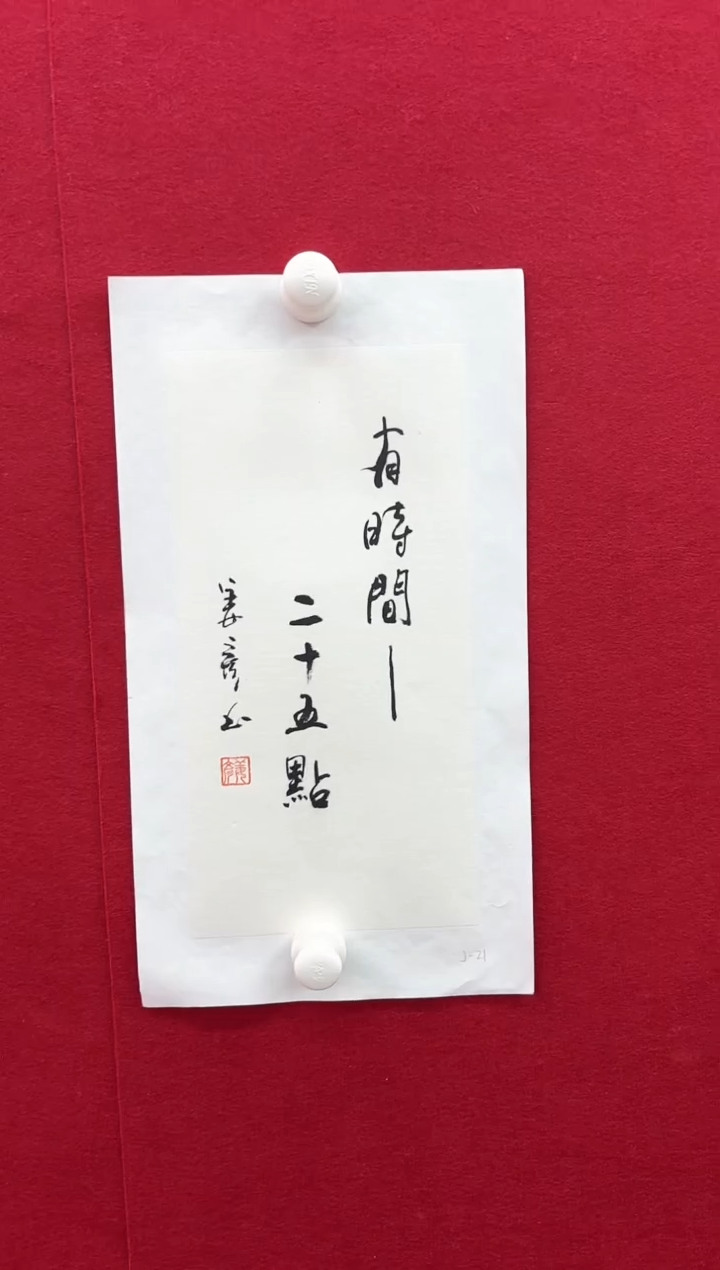 有時間—
二十五點
姜彥玉
J-21